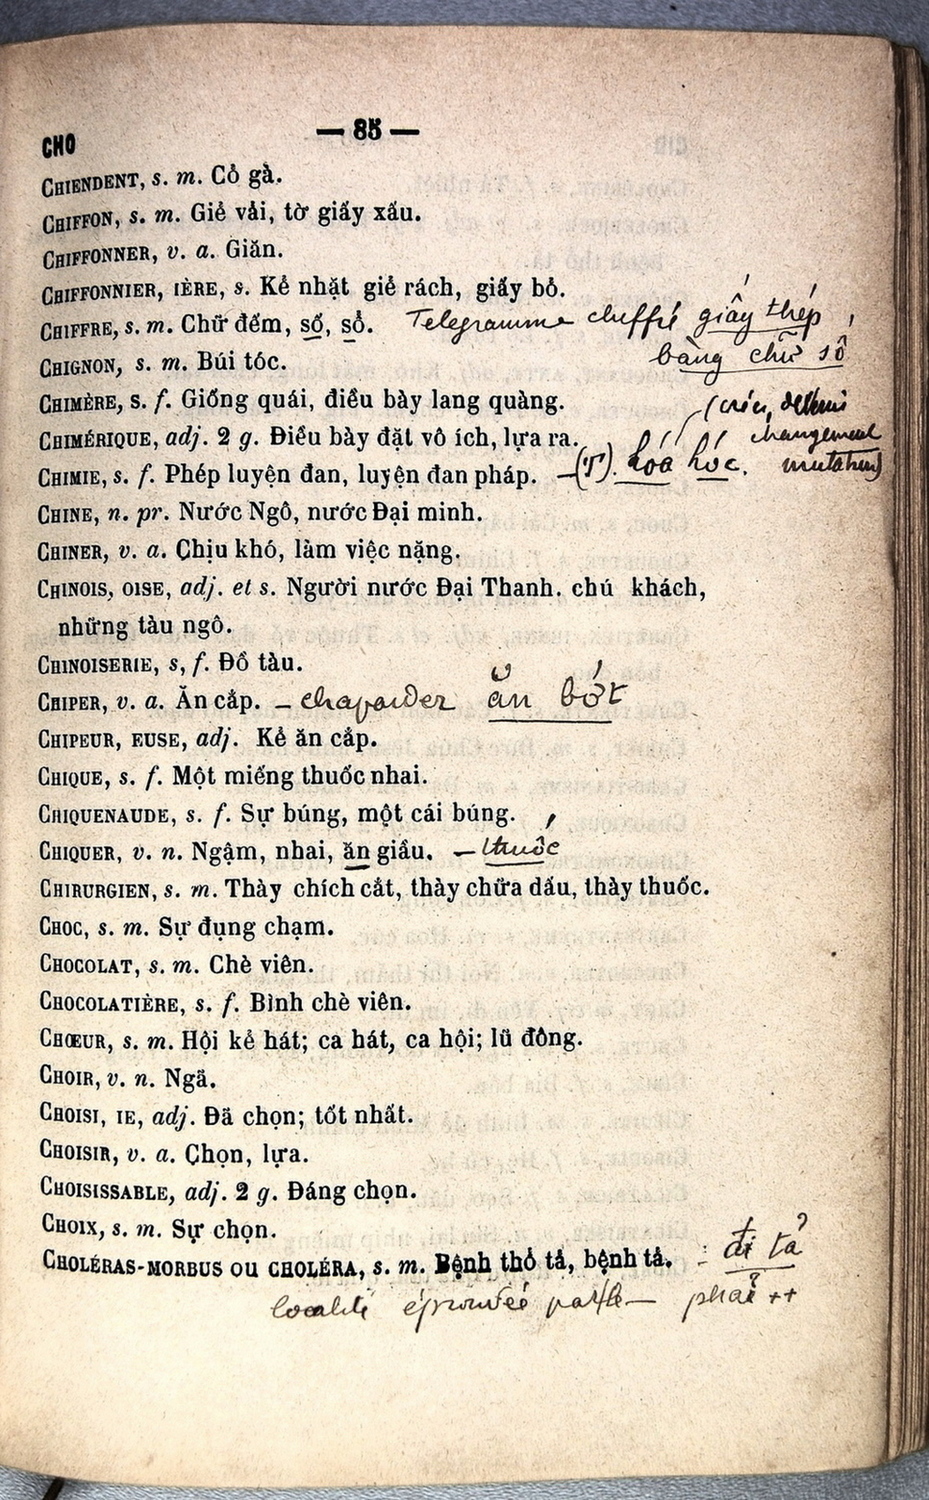 CHO
— 85 —
CHIENDENT, s. m. Cỏ gà.
CHIFFON, s. m. Giẻ vải, tờ giấy xấu.
CHIFFONNER, v. a. Giăn.
CHIFFONNIER, IÈRE, s. Kẻ nhặt giẻ rách, giấy bỏ.
CHIFFRE, s. m. Chữ đếm, số, sổ. Telegramme chiffré giấy thép,
bằng chữ số
CHIGNON, s. m. Búi tóc.
CHIMÈRE, S. f. Giống quái, điều bày lang quàng.
CHIMÉRIQUE, adj. 2 g. Điều bày đặt vô ích, lựa ra.
changement
CHIMIE, s. f. Phép luyện đan, luyện đan pháp. hóa hóc. mutation)
CHINE, n. pr. Nước Ngô, nước Đại minh.
CHINER, v. a. Chịu khó, làm việc nặng.
CHINOIS, OISE, adj. et s. Người nước Đại Thanh. chú khách,
những tàu ngô.
CHINOISERIE, s, f. Đồ tàu.
CHIPER, v. a. Ăn cắp. — chaparder ăn bớt
CHIPEUR, EUSE, adj. Kẻ ăn cắp.
CHIQUE, s. f. Một miếng thuốc nhai.
CHIQUENAUDE, s. f. Sự búng, một cái búng.
CHIQUER, v. n. Ngậm, nhai, ăn giầu. — thuốc
CHIRURGIEN, s. m. Thày chích cắt, thày chữa dấu, thày thuốc.
CHOC, s. m. Sự đụng chạm.
CHOCOLAT, s. m. Chè viên.
CHOCOLATIÈRE, s. f. Bình chè viên.
CHŒUR, s. m. Hội kẻ hát; ca hát, ca hội; lũ đông.
CHOIR, v. n. Ngã.
CHOISI, IE, adj. Đã chọn; tốt nhất.
CHOISIR, v. a. Chọn, lựa.
CHOISISSABLE, adj. 2 g. Đáng chọn.
CHOIX, s. m. Sự chọn.
CHOLÉRAS-MORBUS OU CHOLÉRA, s. m. Bệnh thổ tả, bệnh tả. đi tả
localité éprouvée par le — phải ++